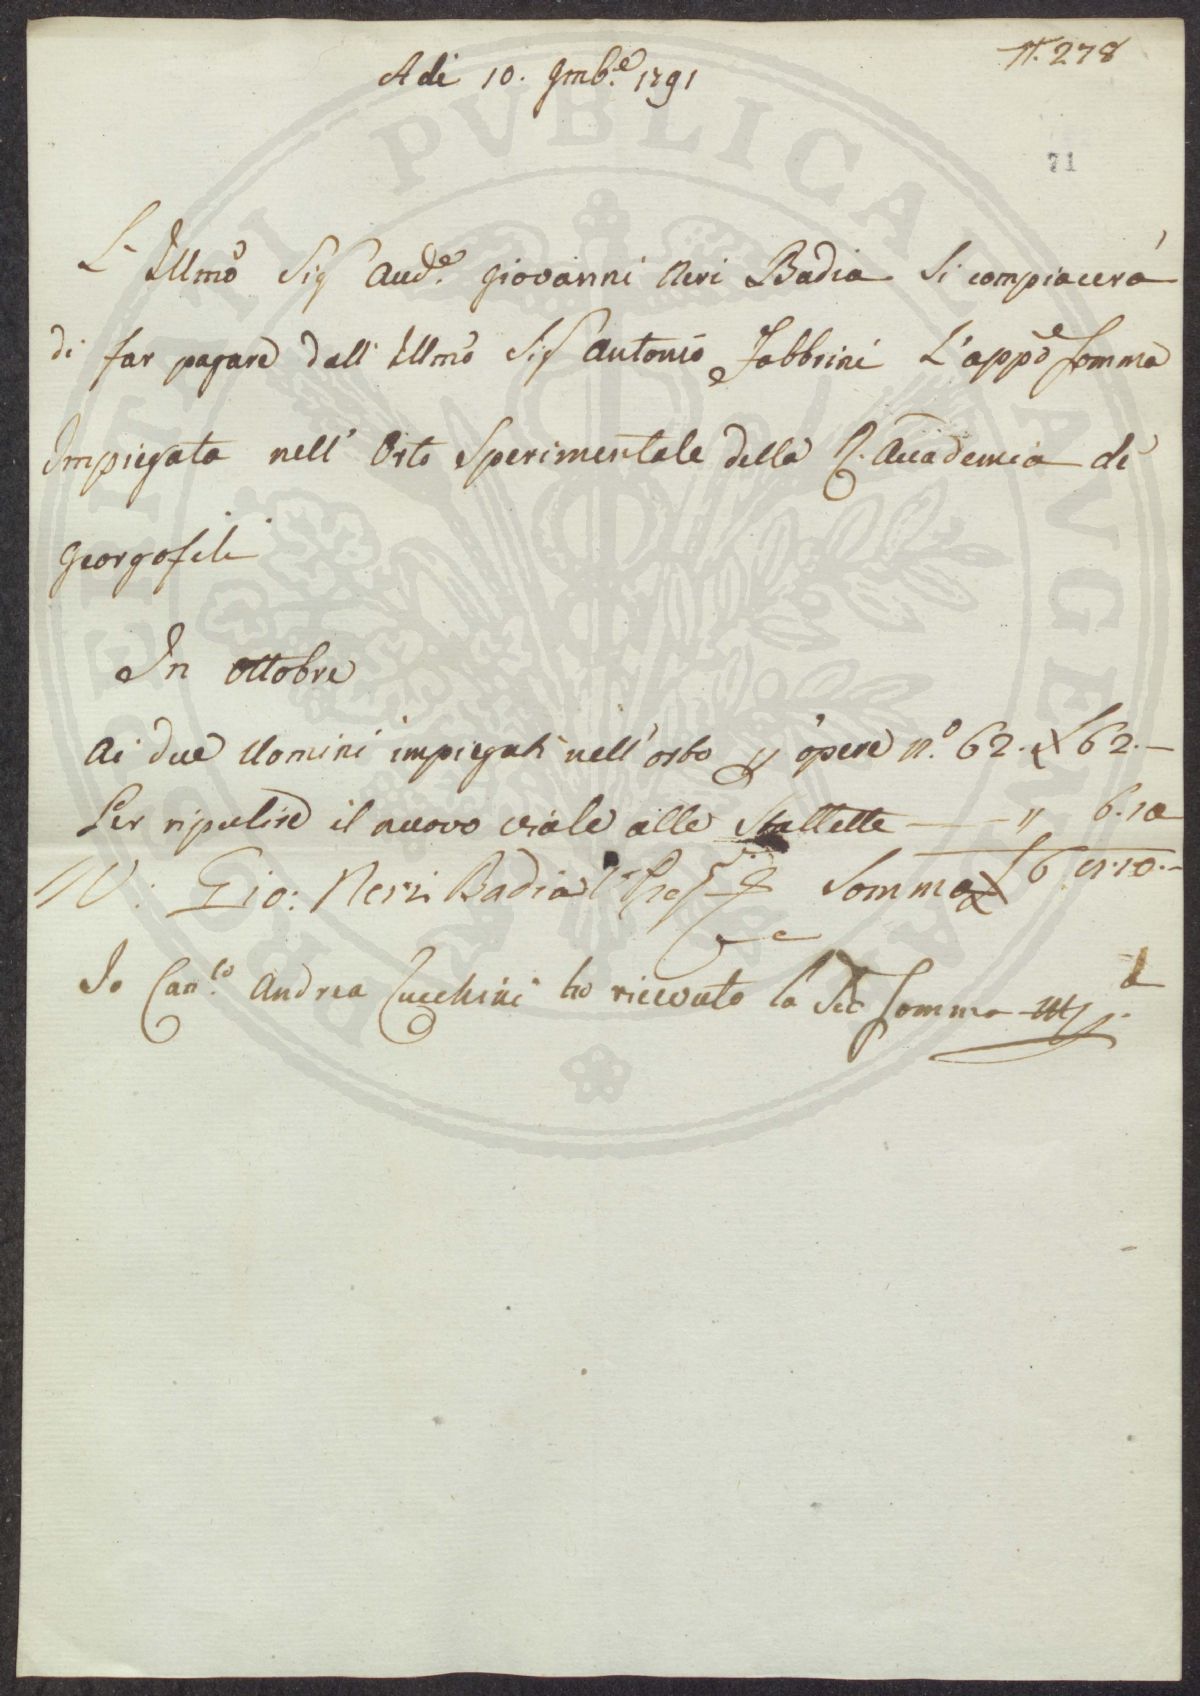 N. 278
A di 10. 9mb.e 1791
71
L' Illmo Sig Aud.e Giovanni Neri Badia si compiacerà
di far pagare dall' Illmo Sig Antonio Fabbrini L'appd.e somma
Impiegata nell' Orto Sperimentale della R. Accademia de
Georgofili
In Ottobre
Ai due Uomini impiegati nell' orto p opere n.o 62. £ 62.—
Per ripulire il nuovo viale alle Stallette —— " 6.10
V: Gio: Neri Badia Somma £ 6
Io Can.co Andrea Zucchini ho ricevuto la Sud.a somma
PROSPERITATI PVBLICAE AVGENDAE